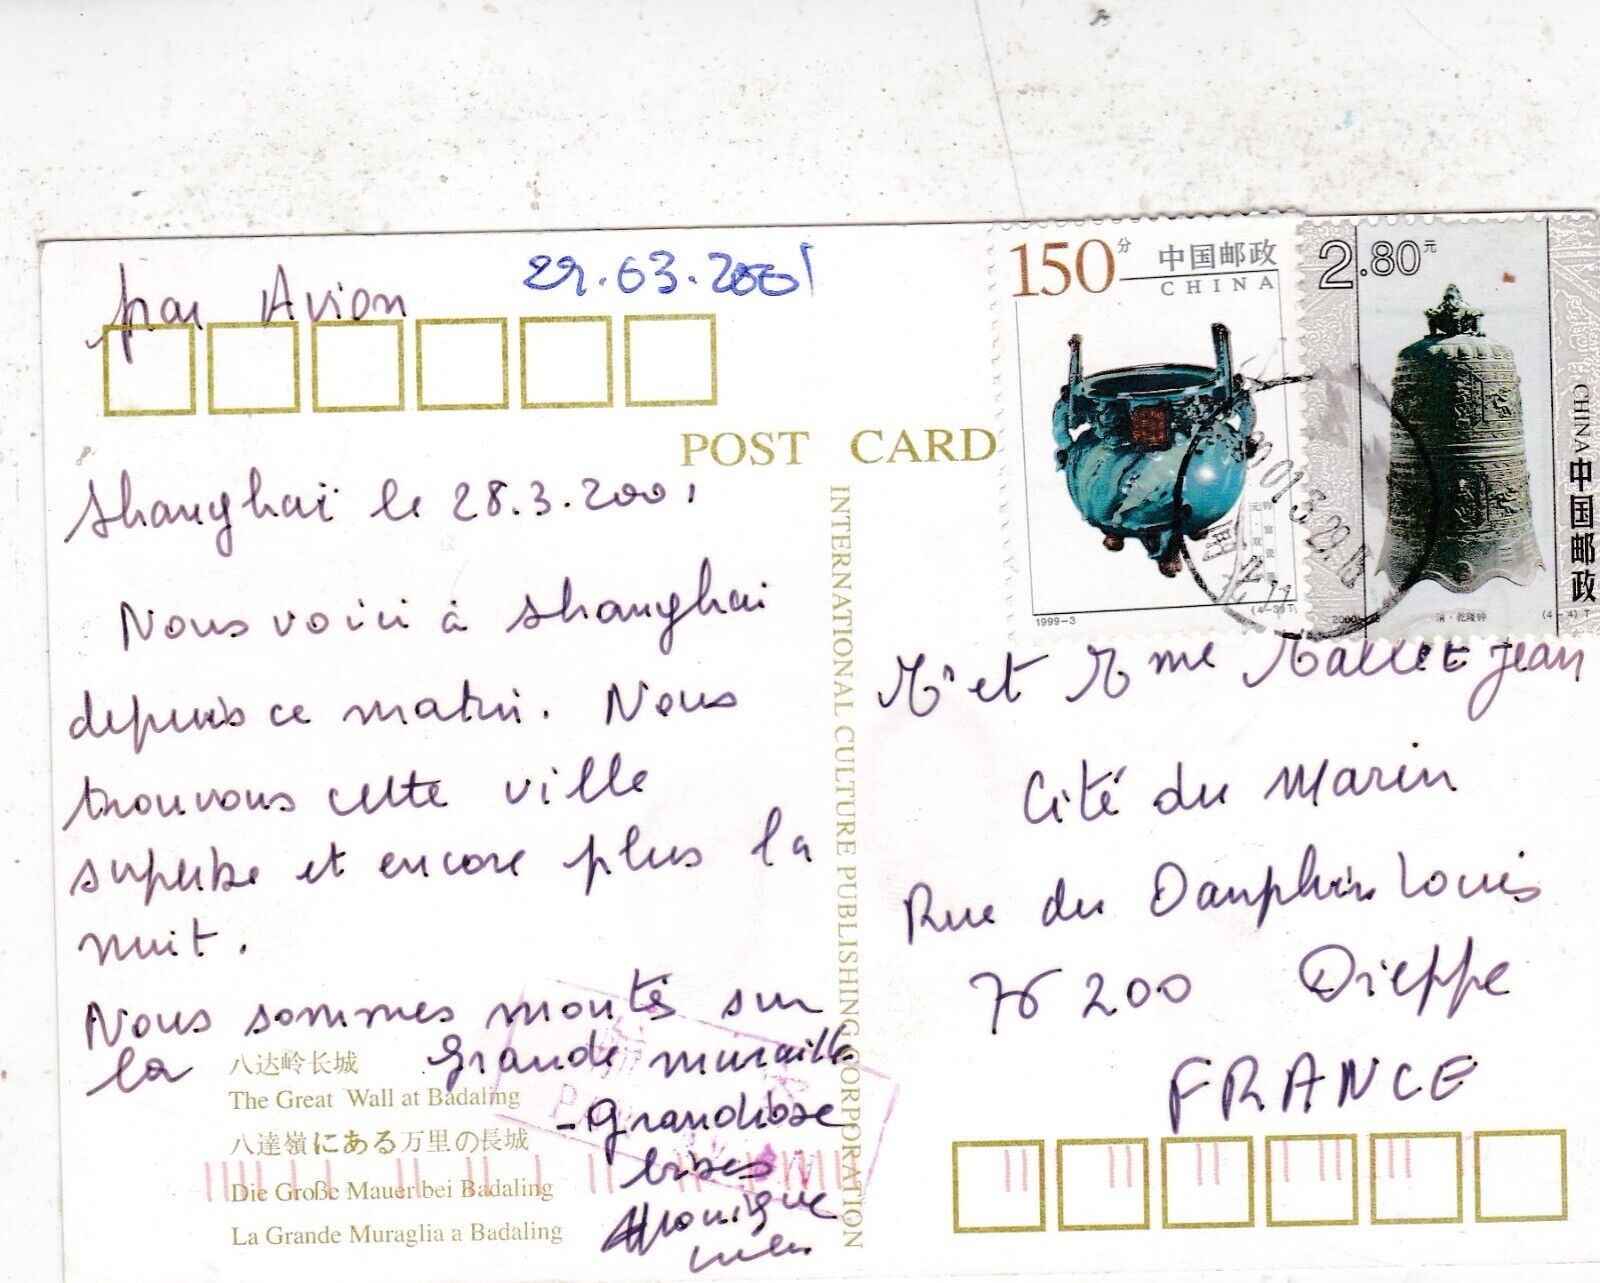 par Avion
29.03.2001
150分 中国邮政
CHINA
1999-3
(4-3)T
2.80元
CHINA 中国邮政
清·乾隆钟
(4-4)T
POST CARD
INTERNATIONAL CULTURE PUBLISHING CORPORATION
Shanghaï le 28.3.2001
Nous voici à Shanghai
depuis ce matin. Nous
trouvons cette ville
superbe et encore plus la
nuit.
Nous sommes montés sur
la Grande muraille
- Grandiose
bises
Monique
八达岭长城
The Great Wall at Badaling
八達嶺にある万里の長城
Die Große Mauer bei Badaling
La Grande Muraglia a Badaling
Mr et Mme Mallet Jean
Cité du Marin
Rue du Dauphin Louis
76200 Dieppe
FRANCE